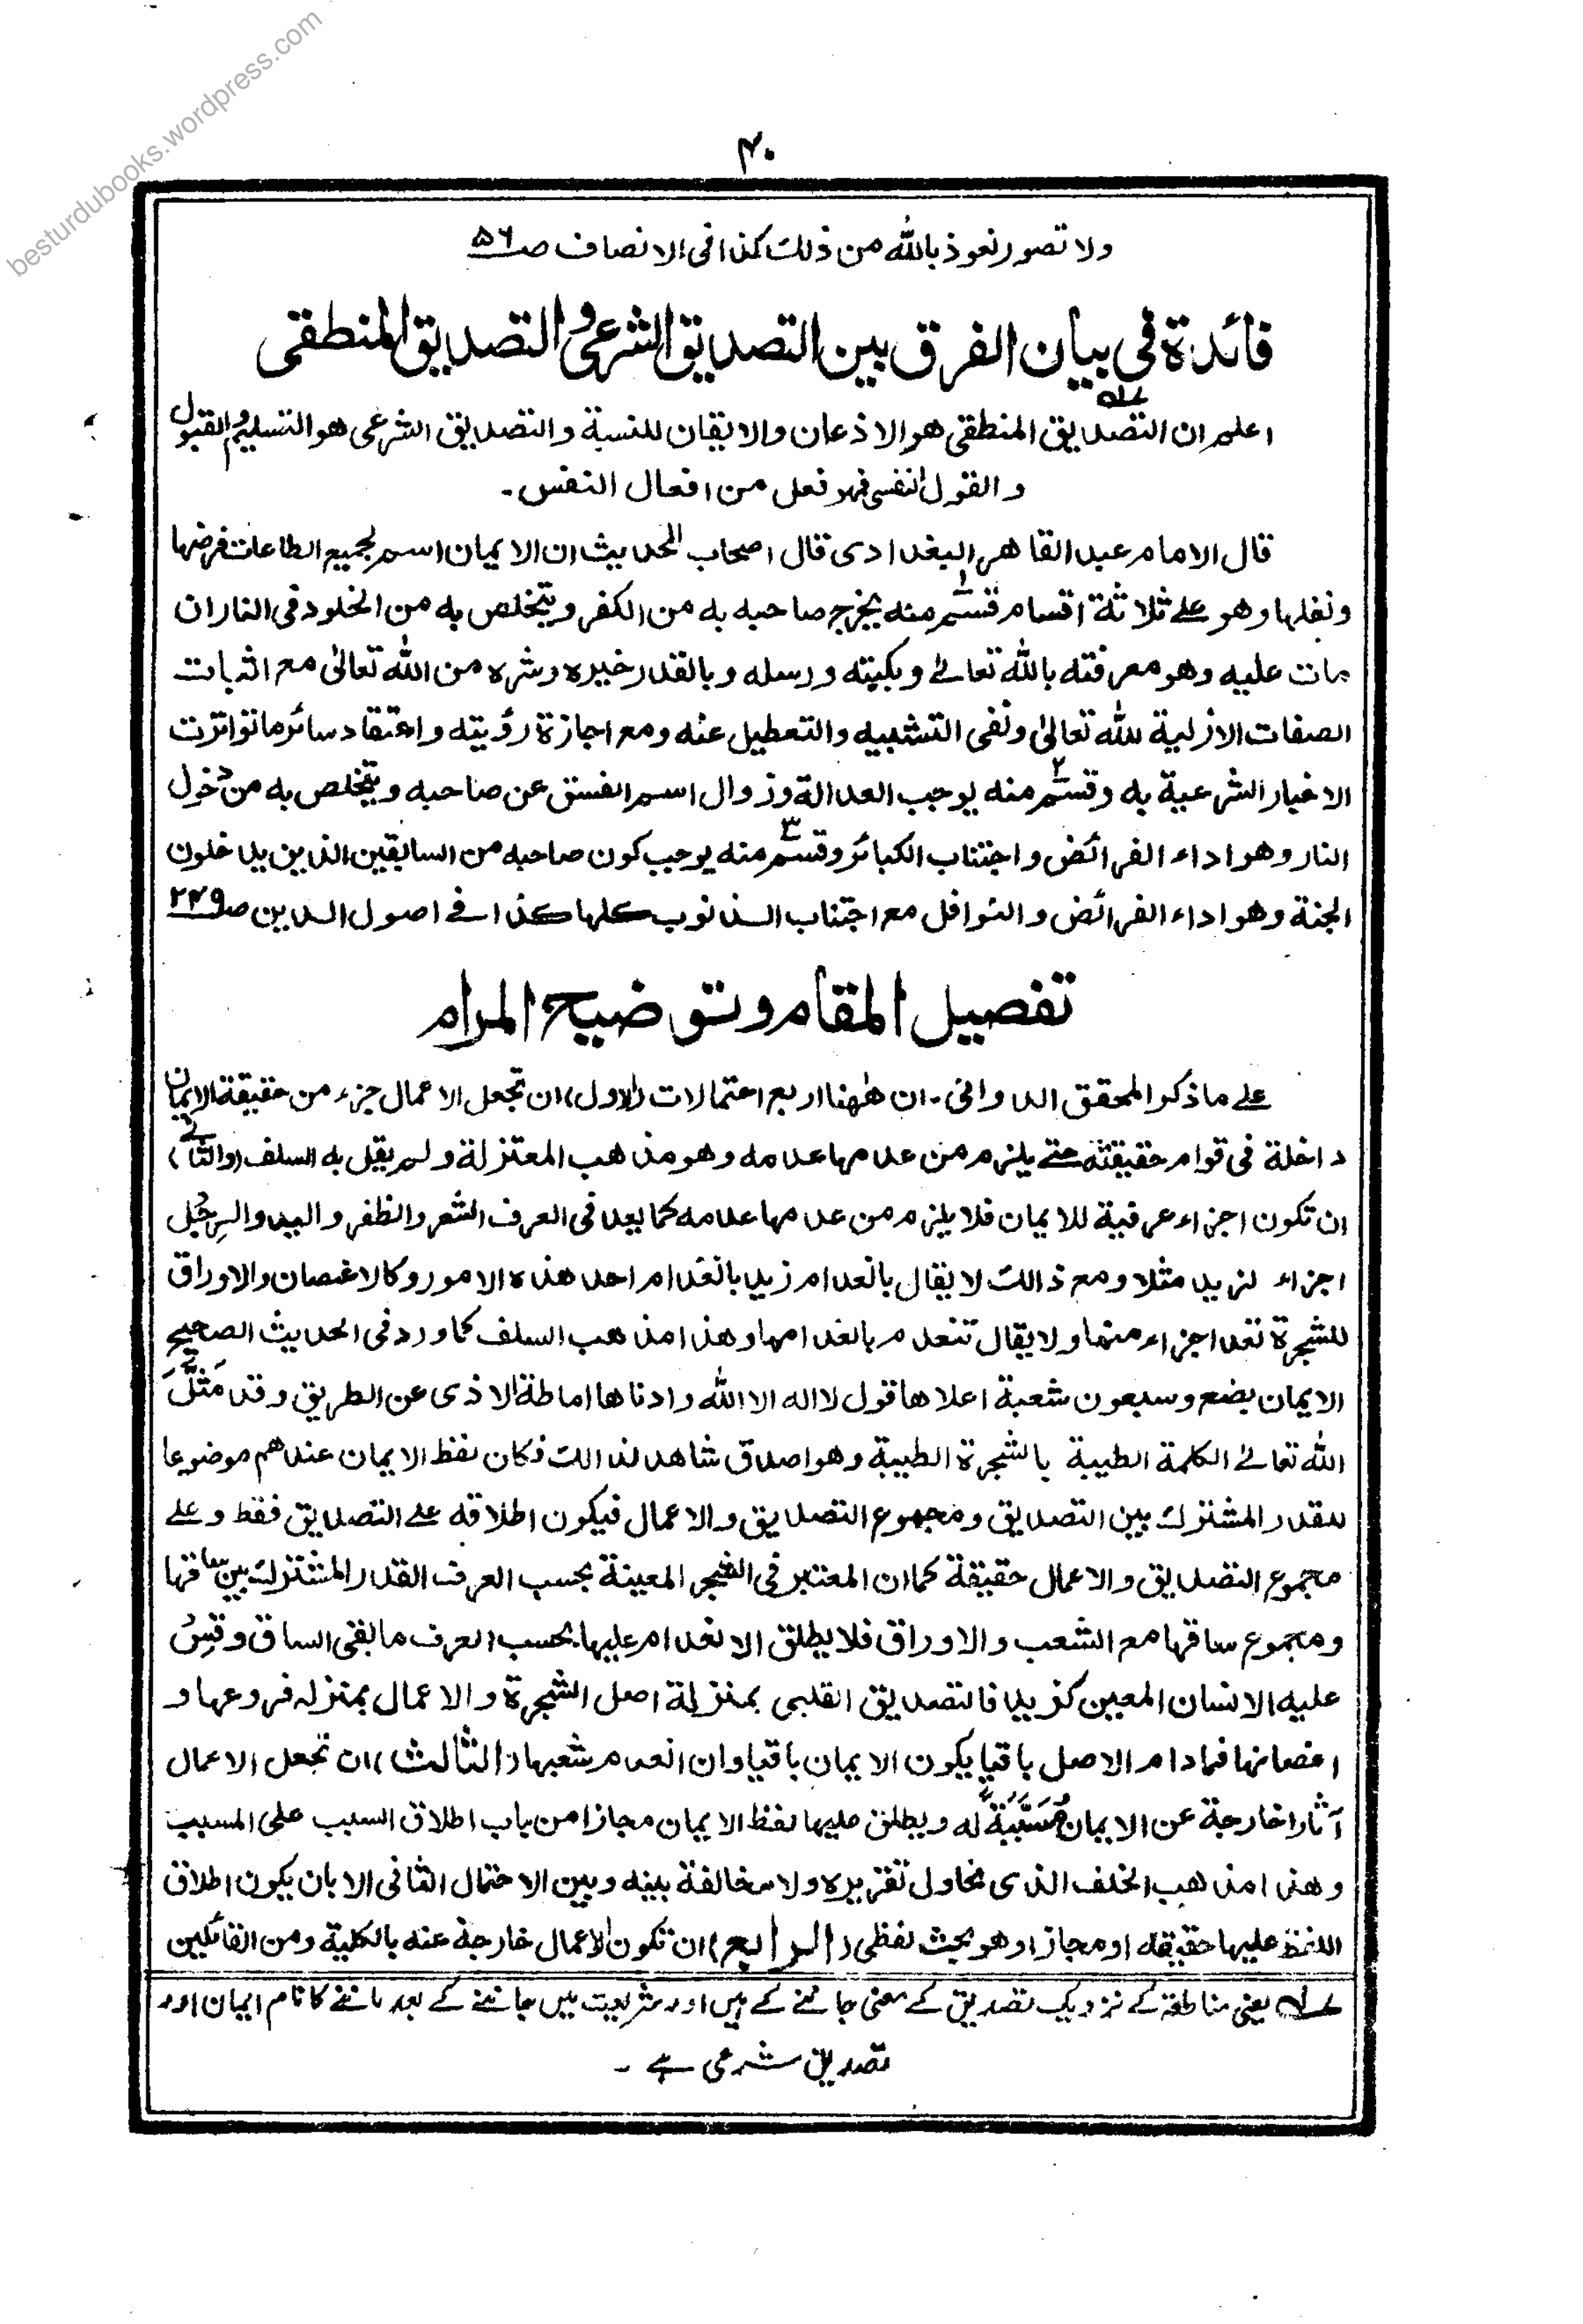 besturdubooks.wordpress.com
۴۰
ولا تصور نعوذ بالله من ذلك كذا فى الانصاف صـ ۵۶
فائدة في بيان الفرق بين التصديق الشرعى و التصديق المنطقى
اعلم ان التصديق المنطقى هو الاذعان والايقان للنسبة والتصديق الشرعى هو التسليم والقبول
والقول النفسى فهو فعل من افعال النفس ۔
قال الامام عبد القاهر البغدادى قال اصحاب الحديث ان الايمان اسم لجميع الطاعات فرضها
ونفلها وهو على ثلاثة اقسام قسم ۱ منه يخرج صاحبه به من الكفر ويتخلص به من الخلود فى النار ان
مات عليه وهو معرفته بالله تعالى وبكتبه ورسله وبالقدر خيره وشره من الله تعالى مع اثبات
الصفات الازلية لله تعالى ونفى التشبيه والتعطيل عنه ومع اجازة رؤيته واعتقاد سائر ما تواترت
الاخبار الشرعية به وقسم ۲ منه يوجب العدالة وزوال اسم الفسق عن صاحبه ويتخلص به من دخول
النار وهو اداء الفرائض واجتناب الكبائر وقسم ۳ منه يوجب كون صاحبه من السابقين الذين يدخلون
الجنة وهو اداء الفرائض والنوافل مع اجتناب الذنوب كلها كذا فى اصول الدين صـ ۲۴۹
تفصيل المقام و توضيح المرام
على ما ذكر المحقق الدوانى ۔ ان ههنا اربع احتمالات (الاول) ان تجعل الاعمال جزء من حقيقة الايمان
داخلة فى قوام حقيقته حتى يلزم من عدمها عدمه وهو مذهب المعتزلة ولم يقل به السلف (والثانى)
ان تكون اجزاء عرفية للايمان فلا يلزم من عدمها عدمه كما يعد فى العرف الشعر والظفر واليد والرِجل
اجزاء لزيد مثلا ومع ذالك لا يقال بانعدام زيد بانعدام احد هذه الامور وكالاغصان والاوراق
للشجرة تعد اجزاء منها ولا يقال تنعدم بانعدامها وهذا مذهب السلف كما ورد فى الحديث الصحيح
الايمان بضع وسبعون شعبة اعلاها قول لا اله الا الله وادناها اماطة الاذى عن الطريق وقد مَثَّلَ
الله تعالى الكلمة الطيبة بالشجرة الطيبة وهو اصدق شاهد لذالك فكان لفظ الايمان عندهم موضوعا
للقدر المشترك بين التصديق ومجموع التصديق والاعمال فيكون اطلاقه على التصديق فقط وعلى
مجموع التصديق والاعمال حقيقة كما ان المعتبر فى الشجر المعينة بحسب العرف القدر المشترك بين ساقها
ومجموع ساقها مع الشعب والاوراق فلا يطلق الانعدام عليها بحسب العرف ما بقى الساق وقِسْ
عليه الانسان المعين كزيد فالتصديق القلبى بمنزلة اصل الشجرة والاعمال بمنزله فروعها و
اغصانها فما دام الاصل باقيا يكون الايمان باقيا وان انعدم شعبها (الثالث) ان تجعل الاعمال
آثارا خارجة عن الايمان مُسَبَّبَة له ويطلق عليها لفظ الايمان مجازا من باب اطلاق السبب على المسبب
وهذا مذهب الخلف الذى نحاول تقريره ولا مخالفة بينه وبين الاحتمال الثانى الا بان يكون اطلاق
اللفظ عليها حقيقة او مجازا وهو بحث لفظى (الرابع) ان تكون الاعمال خارجة عنه بالكلية ومن القائلين
لـه یعنی مناطقہ کے نزدیک تصدیق کے معنی جاننے کے ہیں اور شریعت میں جاننے کے بعد ماننے کا نام ایمان اور
تصدیق شرعی ہے ۔